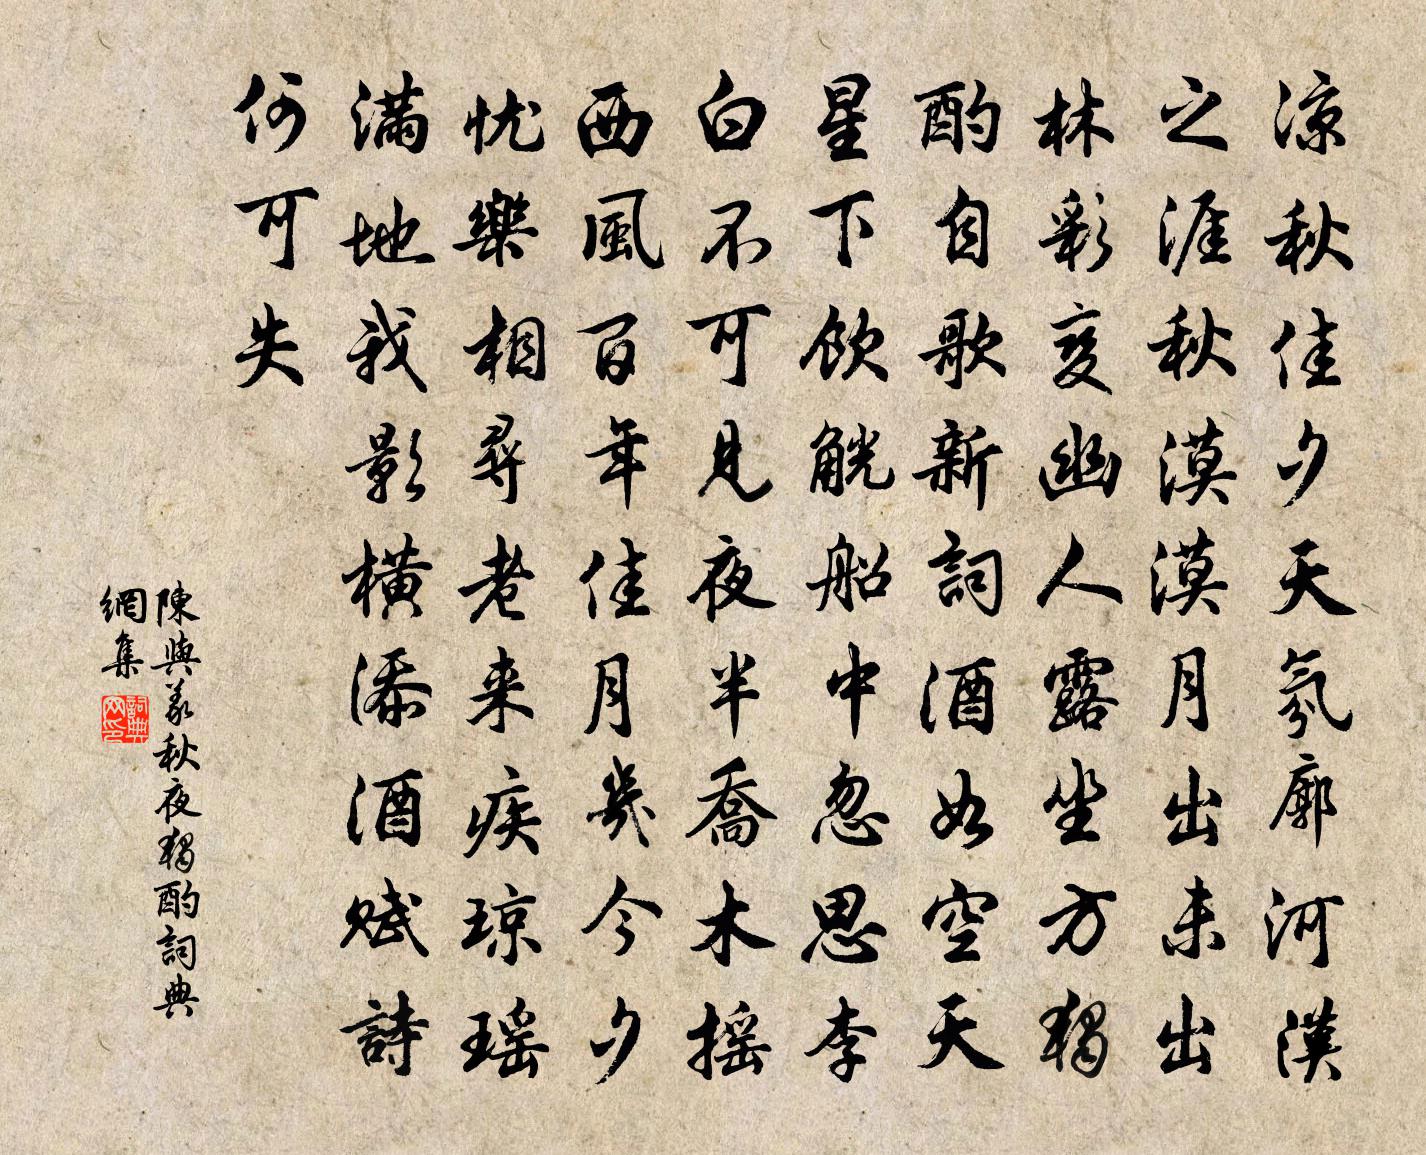 凉秋佳夕天氛廓河漢
之涯秋漠漠月出未出
林彩变幽人露坐方獨
酌自歌新詞酒如空天
星下飲觥船中忽思李
白不可見夜半喬木摇
西風百年佳月幾今夕
忧樂相尋老来疾琼瑶
满地我影横添酒赋詩
何可失
陳與義秋夜獨酌詞典
網集
詞典
网印